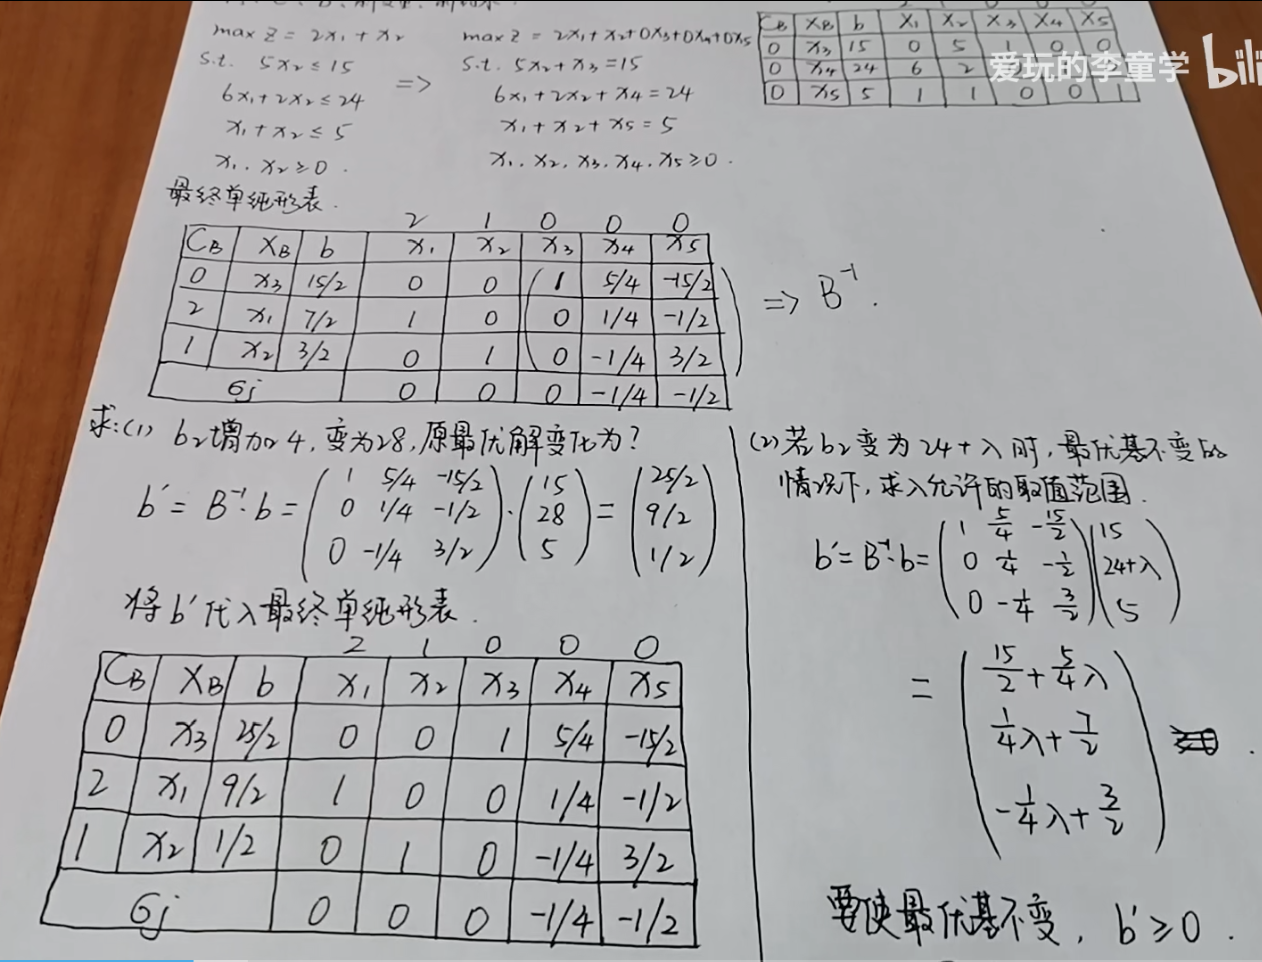 max z = 2x₁ + x₂
s.t. 5x₂ ≤ 15
6x₁ + 2x₂ ≤ 24
x₁ + x₂ ≤ 5
x₁, x₂ ≥ 0.
=>
max z = 2x₁ + x₂ + 0x₃ + 0x₄ + 0x₅
s.t. 5x₂ + x₃ = 15
6x₁ + 2x₂ + x₄ = 24
x₁ + x₂ + x₅ = 5
x₁, x₂, x₃, x₄, x₅ ≥ 0.
C_B X_B b X₁ X₂ X₃ X₄ X₅
0 X₃ 15 0 5 1 0 0
0 X₄ 24 6 2
0 X₅ 5 1 1 0 0 1
爱玩的李童学 bili
最终单纯形表.
2 1 0 0 0
C_B X_B b X₁ X₂ X₃ X₄ X₅
0 X₃ 15/2 0 0 1 5/4 -15/2
2 X₁ 7/2 1 0 0 1/4 -1/2
1 X₂ 3/2 0 1 0 -1/4 3/2
σj 0 0 0 -1/4 -1/2
=> B⁻¹.
求:(1) b₂增加4,变为28,原最优解变化为?
b' = B⁻¹·b = ( 1 5/4 -15/2 ) · ( 15 ) = ( 25/2 )
( 0 1/4 -1/2 ) ( 28 ) ( 9/2 )
( 0 -1/4 3/2 ) ( 5 ) ( 1/2 )
将b'代入最终单纯形表.
2 1 0 0 0
C_B X_B b X₁ X₂ X₃ X₄ X₅
0 X₃ 25/2 0 0 1 5/4 -15/2
2 X₁ 9/2 1 0 0 1/4 -1/2
1 X₂ 1/2 0 1 0 -1/4 3/2
σj 0 0 0 -1/4 -1/2
(2) 若b₂变为24+λ时,最优基不变的
情况下,求λ允许的取值范围.
b' = B⁻¹·b = ( 1 5/4 -15/2 ) ( 15 )
( 0 1/4 -1/2 ) ( 24+λ )
( 0 -1/4 3/2 ) ( 5 )
= ( 15/2 + 5/4 λ )
( 1/4 λ + 7/2 )
( -1/4 λ + 3/2 )
要使最优基不变, b' ≥ 0.